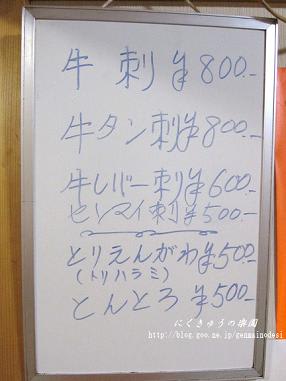 牛刺¥800.-
牛タン刺¥800.-
牛レバー刺¥600.-
センマイ刺¥500.-
とりえんがわ¥500.-
(トリハラミ)
とんとろ¥500.-
にくきゅうの楽園
http://blog.goo.ne.jp/genmainodesi